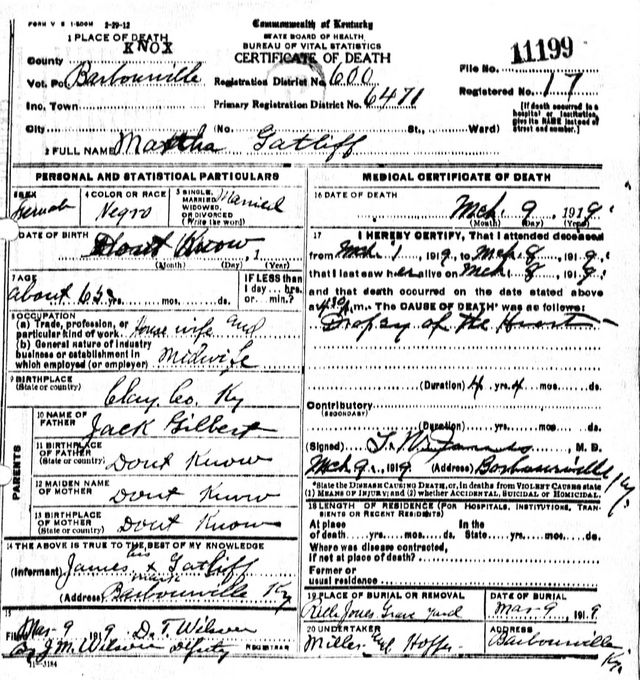 FORM V S 1-500M 2-29-12
Commonwealth of Kentucky
STATE BOARD OF HEALTH,
BUREAU OF VITAL STATISTICS
CERTIFICATE OF DEATH
1 PLACE OF DEATH
KNOX
County
Vot. Pct. Barbourville
Inc. Town
City
Registration District No. 600
Primary Registration District No. 6471
(No. St., Ward)
File No. 11199
Registered No. 17
[If death occurred in a
hospital or institution,
give its NAME instead of
street and number.]
2 FULL NAME Martha Gatliff
PERSONAL AND STATISTICAL PARTICULARS
3 SEX
Female
4 COLOR OR RACE
Negro
5 SINGLE,
MARRIED,
WIDOWED,
OR DIVORCED
(Write the word)
Married
DATE OF BIRTH
Dont Know, 1
(Month) (Day) (Year)
7 AGE
about 65 yrs. mos. ds.
IF LESS than
1 day, hrs.
or min.?
8 OCCUPATION
(a) Trade, profession, or
particular kind of work. House wife and
(b) General nature of industry
business or establishment in
which employed (or employer) Midwife
9 BIRTHPLACE
(State or country)
Clay Co. Ky
PARENTS
10 NAME OF
FATHER
Jack Gilbert
11 BIRTHPLACE
OF FATHER
(State or country)
Dont Know
12 MAIDEN NAME
OF MOTHER
Dont Know
13 BIRTHPLACE
OF MOTHER
(State or country)
Dont Know
14 THE ABOVE IS TRUE TO THE BEST OF MY KNOWLEDGE
his
(Informant) James x Gatliff
mark
(Address) Barbourville Ky
15
Filed Mar-9 1919 D. T. Wilson
By J. M. Wilson Deputy REGISTRAR
11-3184
MEDICAL CERTIFICATE OF DEATH
16 DATE OF DEATH
Mch 9, 1919
(Month) (Day) (Year)
17 I HEREBY CERTIFY, That I attended deceased
from Mch 1 1919, to Mch 8 1919,
that I last saw her alive on Mch 8, 1919,
and that death occurred on the date stated above
at m. The CAUSE OF DEATH* was as follows:
Dropsy of the Heart
(Duration) 4 yrs. mos. ds.
Contributory
(SECONDARY)
(Duration) yrs. mos. ds.
(Signed) M. D.
Mch 9, 1919 (Address) Barbourville Ky.
*State the DISEASE CAUSING DEATH, or, in deaths from VIOLENT CAUSES state
(1) MEANS OF INJURY; and (2) whether ACCIDENTAL, SUICIDAL or HOMICIDAL.
18 LENGTH OF RESIDENCE (FOR HOSPITALS, INSTITUTIONS, TRAN-
SIENTS OR RECENT RESIDENTS)
At place In the
of death yrs. mos. ds. State yrs. mos. ds.
Where was disease contracted,
if not at place of death?
Former or
usual residence
19 PLACE OF BURIAL OR REMOVAL
Jones Grave yard
DATE OF BURIAL
Mar-9, 1919
20 UNDERTAKER
Miller
ADDRESS
Barbourville
Ky.